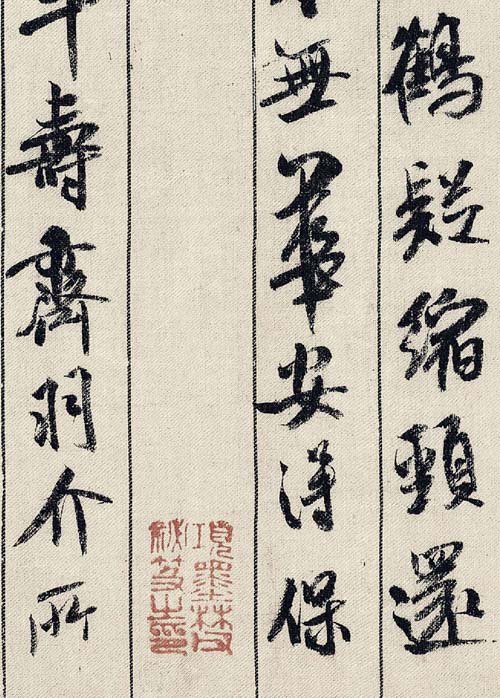 鶴疑縮頸還
無華安得保
項墨林父
秘笈之印
年壽齊羽介所